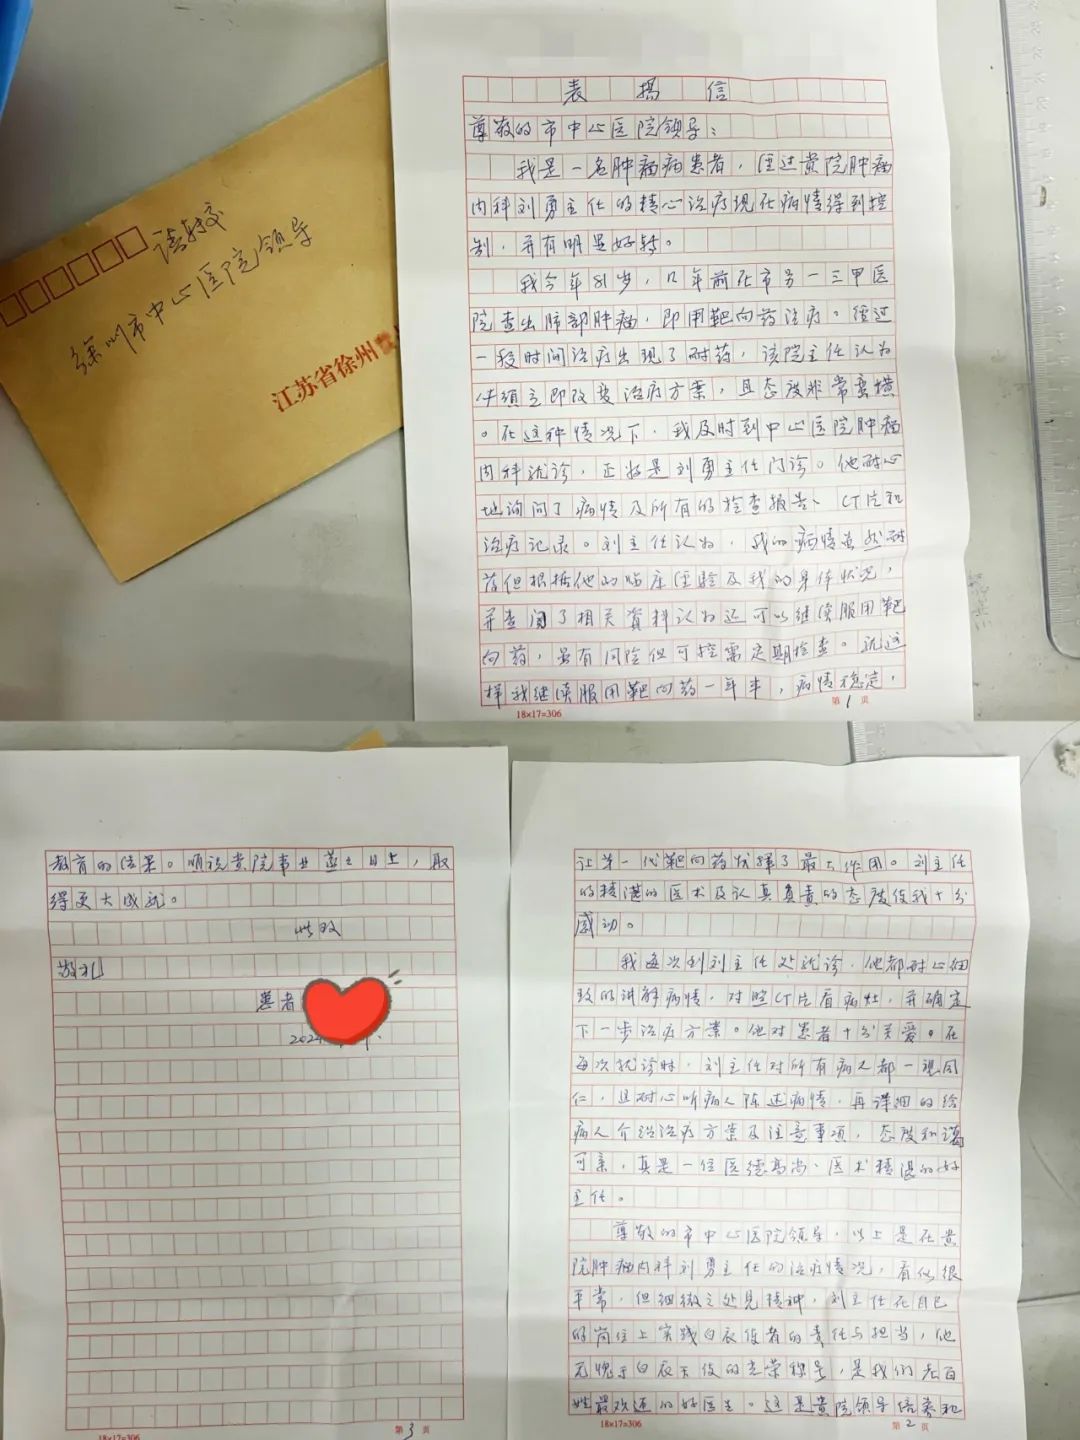 请转交
徐州市中心医院领导
江苏省徐州
表扬信
尊敬的市中心医院领导：
我是一名肿瘤病患者，经过贵院肿瘤
内科刘勇主任的精心治疗现在病情得到控
制，并有明显好转。
我今年81岁，几年前在市另一三甲医
院查出肺部肿瘤，即用靶向药治疗。经过
一段时间治疗出现了耐药，该院主任认为
必须立即改变治疗方案，且态度非常蛮横
。在这种情况下，我及时到中心医院肿瘤
内科就诊，正好是刘勇主任门诊。他耐心
地询问了病情及所有的检查报告、CT片和
治疗记录。刘主任认为，我的病情虽然耐
药但根据他的临床经验及我的身体状况，
并查阅了相关资料认为还可以继续服用靶
向药，虽有风险但可控需定期检查。就这
样我继续服用靶向药一年半，病情稳定，
18×17=306
第1页
让第一代靶向药发挥了最大作用。刘主任
的精湛的医术及认真负责的态度使我十分
感动。
我每次到刘主任处就诊，他都耐心细
致的讲解病情，对照CT片看病灶，并确定
下一步治疗方案。他对患者十分关爱。在
每次就诊时，刘主任对所有病人都一视同
仁，且耐心听病人陈述病情，再详细的给
病人介绍治疗方案及注意事项，态度和蔼
可亲，真是一位医德高尚、医术精湛的好
主任。
尊敬的市中心医院领导，以上是在贵
院肿瘤内科刘勇主任的治疗情况，看似很
平常，但细微之处见精神，刘主任在自己
的岗位上实践白衣使者的责任与担当，他
无愧于白衣天使的光荣称号，是我们老百
姓最欢迎的好医生。这是贵院领导培养和
18×17=306
第2页
教育的结果。顺祝贵院事业蒸之日上，取
得更大成就。
此致
敬礼
患者
2024
18×17=306
第3页